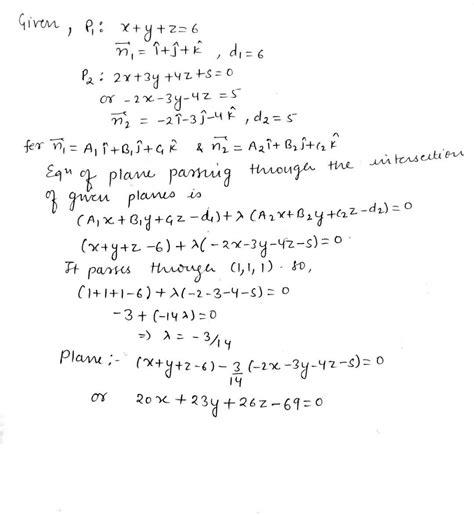 Given, P₁: x+y+z=6
n⃗₁ = î+ĵ+k̂, d₁=6
P₂: 2x+3y+4z+5=0
or -2x-3y-4z=5
n⃗₂ = -2î-3ĵ-4k̂, d₂=5
for n⃗₁=A₁î+B₁ĵ+C₁k̂ & n⃗₂=A₂î+B₂ĵ+C₂k̂
Eqn of plane passing through the intersection
of given planes is
(A₁x+B₁y+C₁z-d₁)+λ(A₂x+B₂y+C₂z-d₂)=0
(x+y+z-6)+λ(-2x-3y-4z-5)=0
It passes through (1,1,1). so,
(1+1+1-6)+λ(-2-3-4-5)=0
-3+(-14λ)=0
⇒ λ=-3/14
Plane:- (x+y+z-6)-3/14(-2x-3y-4z-5)=0
or 20x+23y+26z-69=0